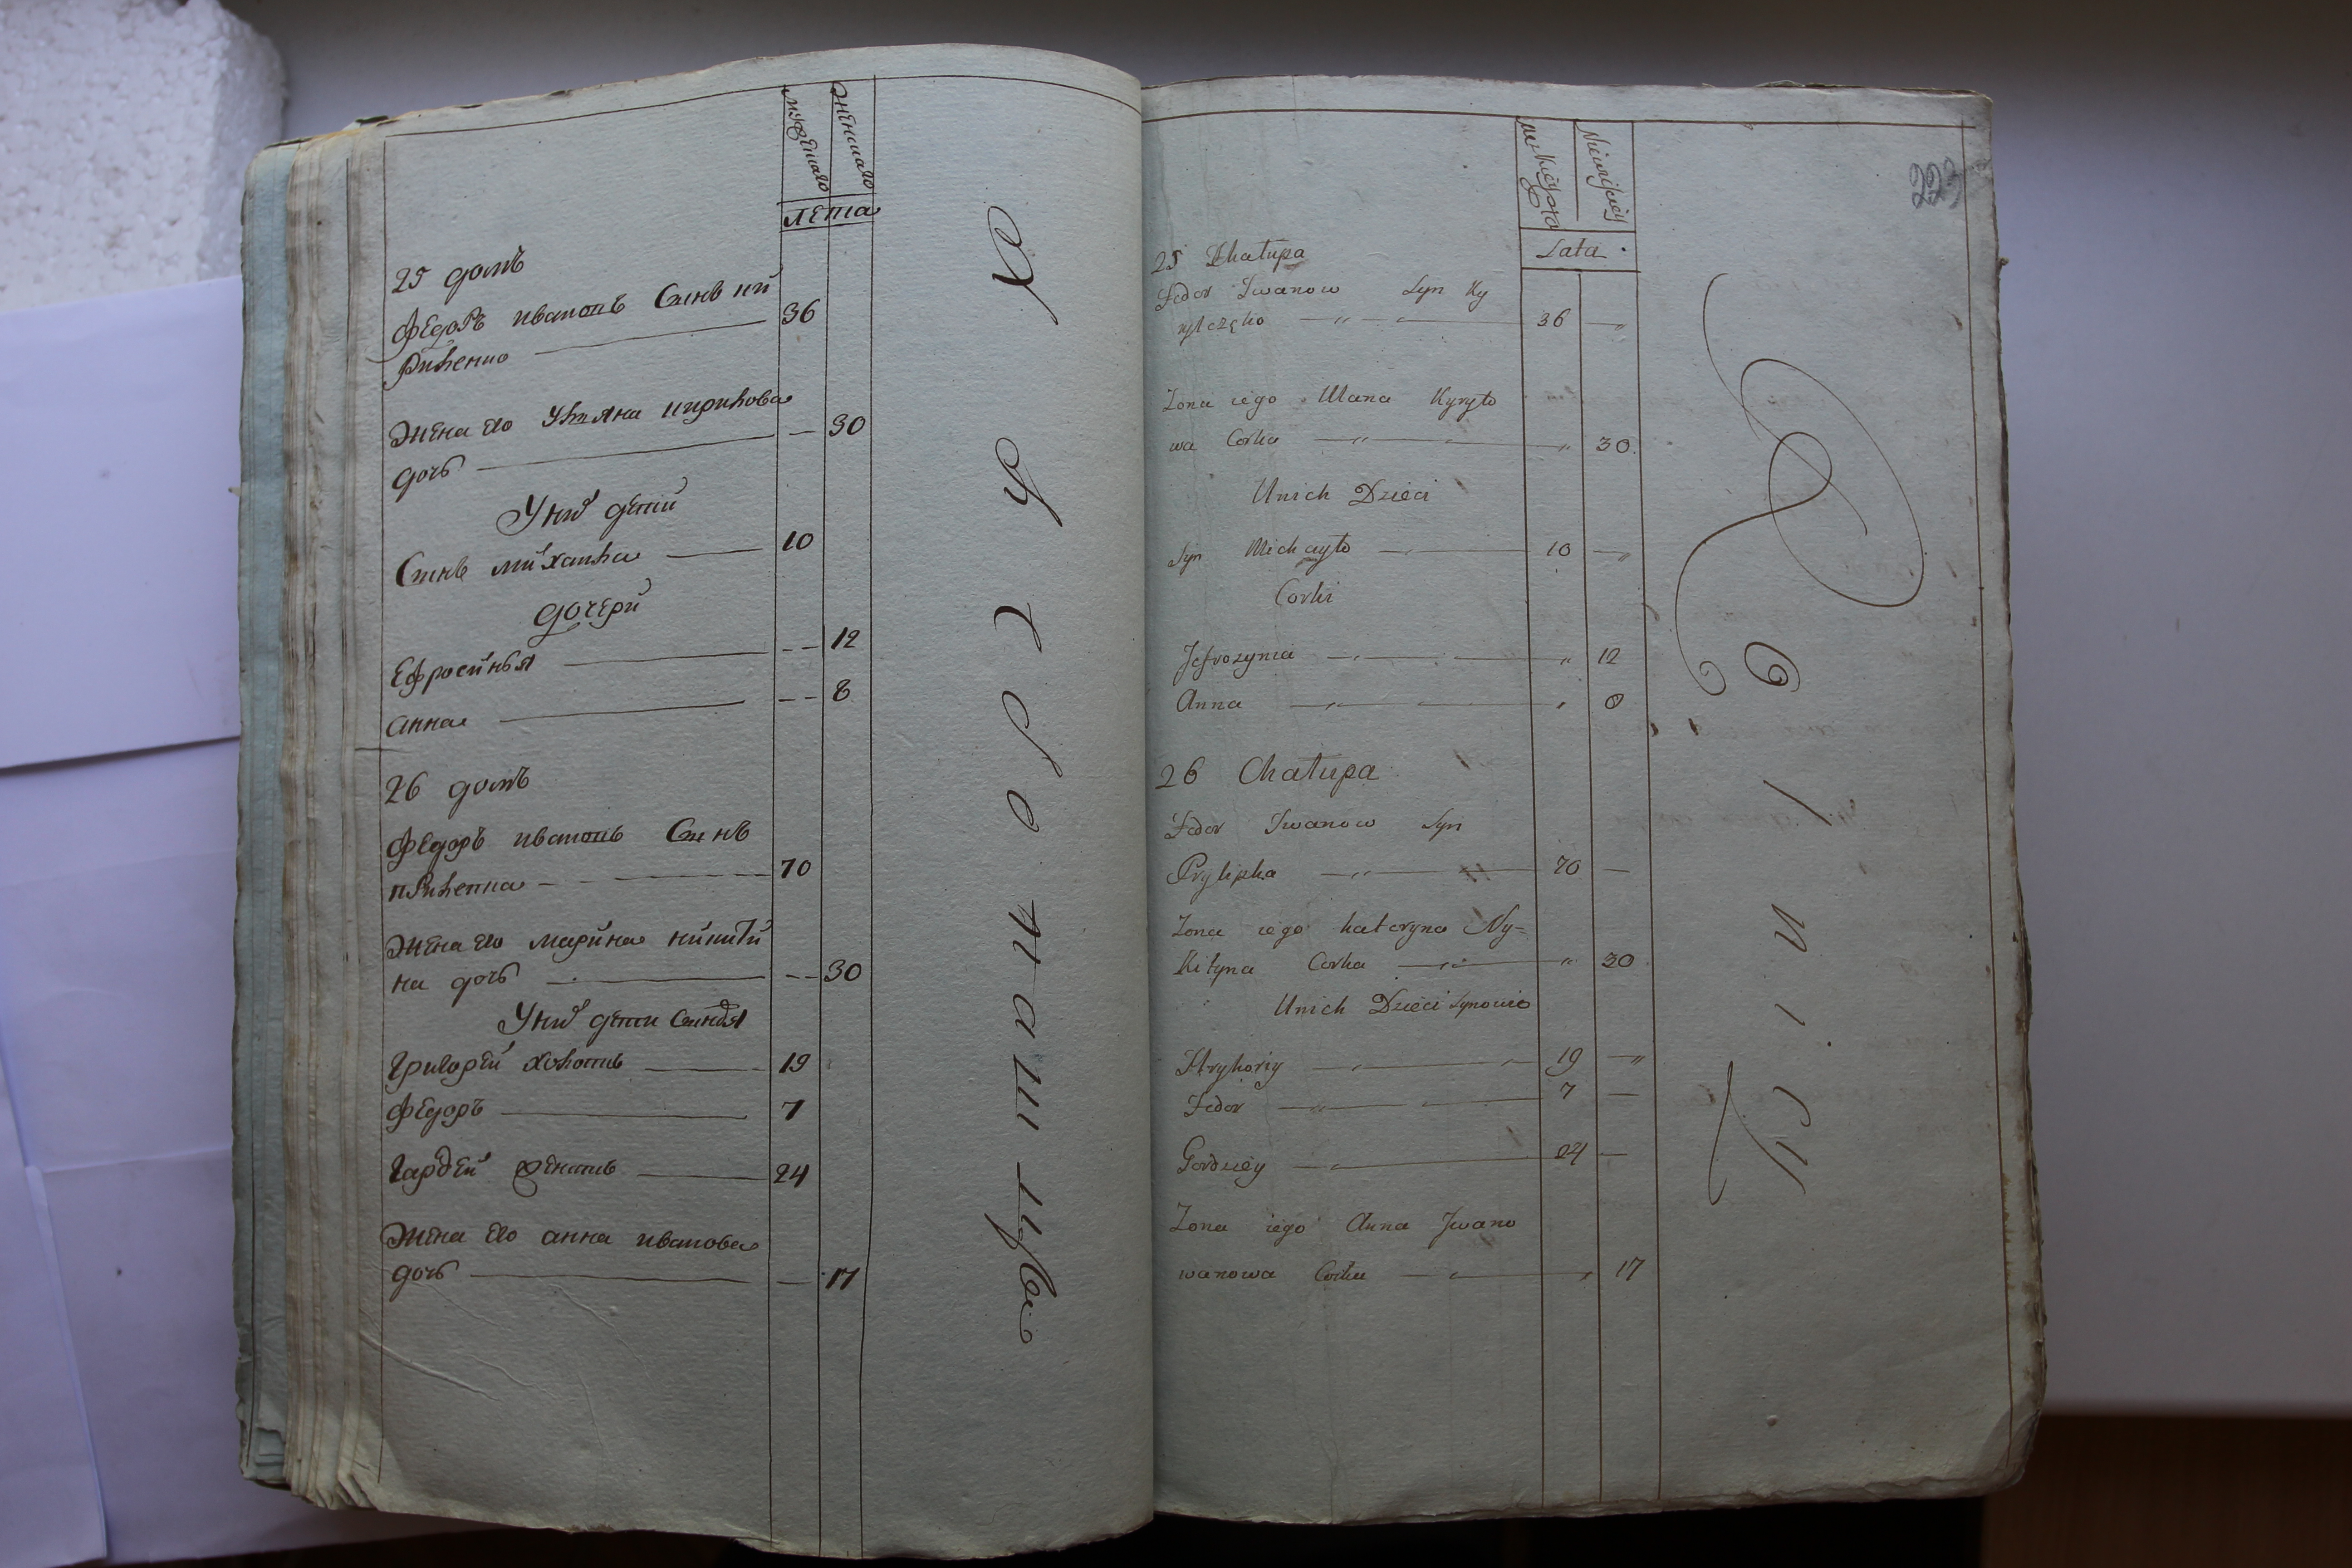 мужеска
женска
лета
25 домъ
Федоръ ивановъ Синъ ки
Риленко 36
Жена его Уляна кирилова
дочь 30
У них дети
Синъ михайла 10
дочери
Ефросинья 12
анна 8
26 домъ
Федоръ ивановъ Синъ
пРилепка 70
Жена его марина никити
на дочь 30
У них дети Синовя
Григорей холость 19
Федоръ 7
Гардей 24
Жена его анна иванова
дочь 17
223
Lata
25 Chałupa
Fedor Iwanow Syn Ky
36
Zona iego Ulana Kyryło
wa Corka 30
Unich Dzieci
Syn Michayło 10
Corki
Jefrozynia 12
Anna 8
26 Chałupa
Fedor Iwanow Syn
Prylipka 70
Zona iego Kateryna Ny=
Kityna Corka 30
Unich Dzieci Synowie
Hryhoriy 19
Fedor 7
Gordziey 24
Zona iego Anna Jwano
wanowa Corka 17